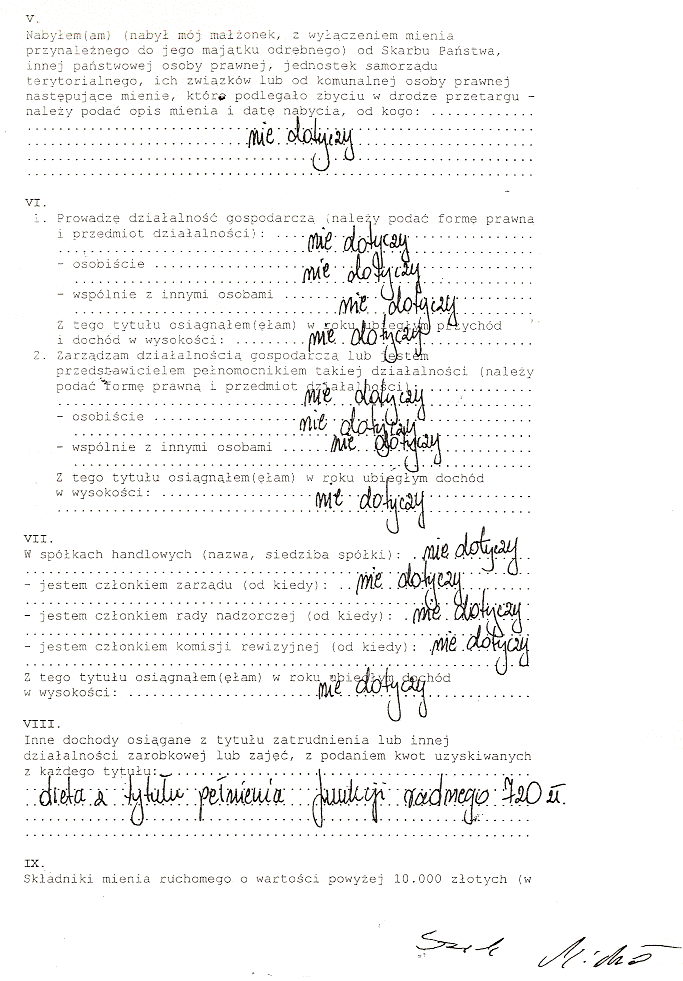 V.
Nabyłem(am) (nabył mój małżonek, z wyłączeniem mienia
przynależnego do jego majątku odrębnego) od Skarbu Państwa,
innej państwowej osoby prawnej, jednostek samorządu
terytorialnego, ich związków lub od komunalnej osoby prawnej
następujące mienie, które podlegało zbyciu w drodze przetargu -
należy podać opis mienia i datę nabycia, od kogo: .............
nie dotyczy
VI.
1. Prowadzę działalność gospodarczą (należy podać formę prawną
i przedmiot działalności): ....
nie dotyczy
- osobiście ....
nie dotyczy
- wspólnie z innymi osobami ....
nie dotyczy
Z tego tytułu osiągnąłem(ęłam) w roku ubiegłym przychód
i dochód w wysokości: ....
nie dotyczy
2. Zarządzam działalnością gospodarczą lub jestem
przedstawicielem pełnomocnikiem takiej działalności (należy
podać formę prawną i przedmiot działalności): ....
nie dotyczy
- osobiście ....
nie dotyczy
- wspólnie z innymi osobami ....
nie dotyczy
Z tego tytułu osiągnąłem(ęłam) w roku ubiegłym dochód
w wysokości: ....
nie dotyczy
VII.
W spółkach handlowych (nazwa, siedziba spółki): . nie dotyczy
- jestem członkiem zarządu (od kiedy): .. nie dotyczy
- jestem członkiem rady nadzorczej (od kiedy): . nie dotyczy
- jestem członkiem komisji rewizyjnej (od kiedy): nie dotyczy
Z tego tytułu osiągnąłem(ęłam) w roku ubiegłym dochód
w wysokości: .... nie dotyczy
VIII.
Inne dochody osiągane z tytułu zatrudnienia lub innej
działalności zarobkowej lub zajęć, z podaniem kwot uzyskiwanych
z każdego tytułu: ....
dieta z tytułu pełnienia funkcji radnego 720 zł.
IX.
Składniki mienia ruchomego o wartości powyżej 10.000 złotych (w